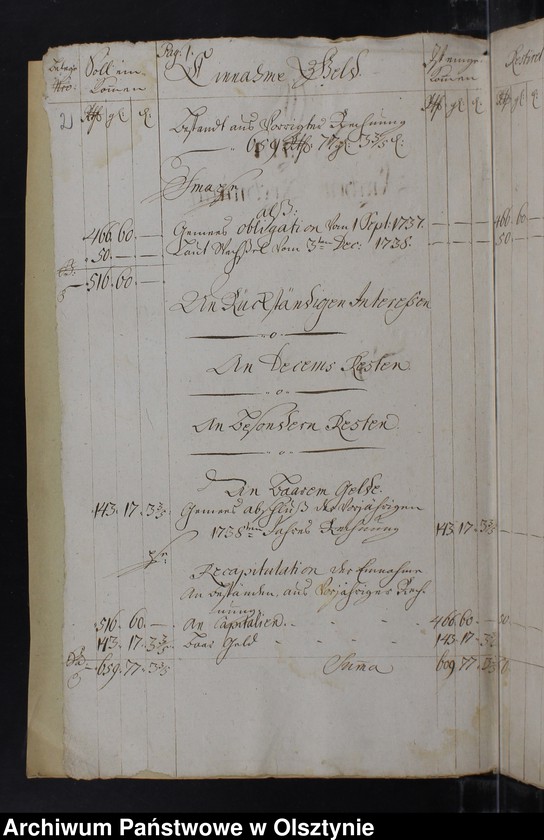 Pag: 1.
Einnahme Geld.
Soll ein-
komen
Ist einge-
komen
Restiret
Bestandt aus Vorrigter Rechnung
659 77 3⅗
alß:
466. 60. — Gemees obligation vom 1 Sept: 1737. — — — 466. 60 —
50. — — Laut Wechßel vom 3ten Dec: 1738. — — — 50. —
516. 60. —
An Rückständigen Interessen
— o —
An Decems Resten
— o —
An Besondern Resten.
— o —
An Baarem Gelde.
143. 17. 3⅗ Gemees abschluß der Vorjährigen
1738ten Jahres Rechnung 143. 17. 3⅗
Recapitulation der Einnahme
An beständen, aus Vorjähriger Rech-
nung.
516. 60. — An Capitalien. - - - 466. 60. — 50. —
143. 17. 3⅗ Baar Geld - - - 143. 17. 3⅗
659. 77. 3⅗ Suma 609. 77. 3⅗
Archiwum Państwowe w Olsztynie